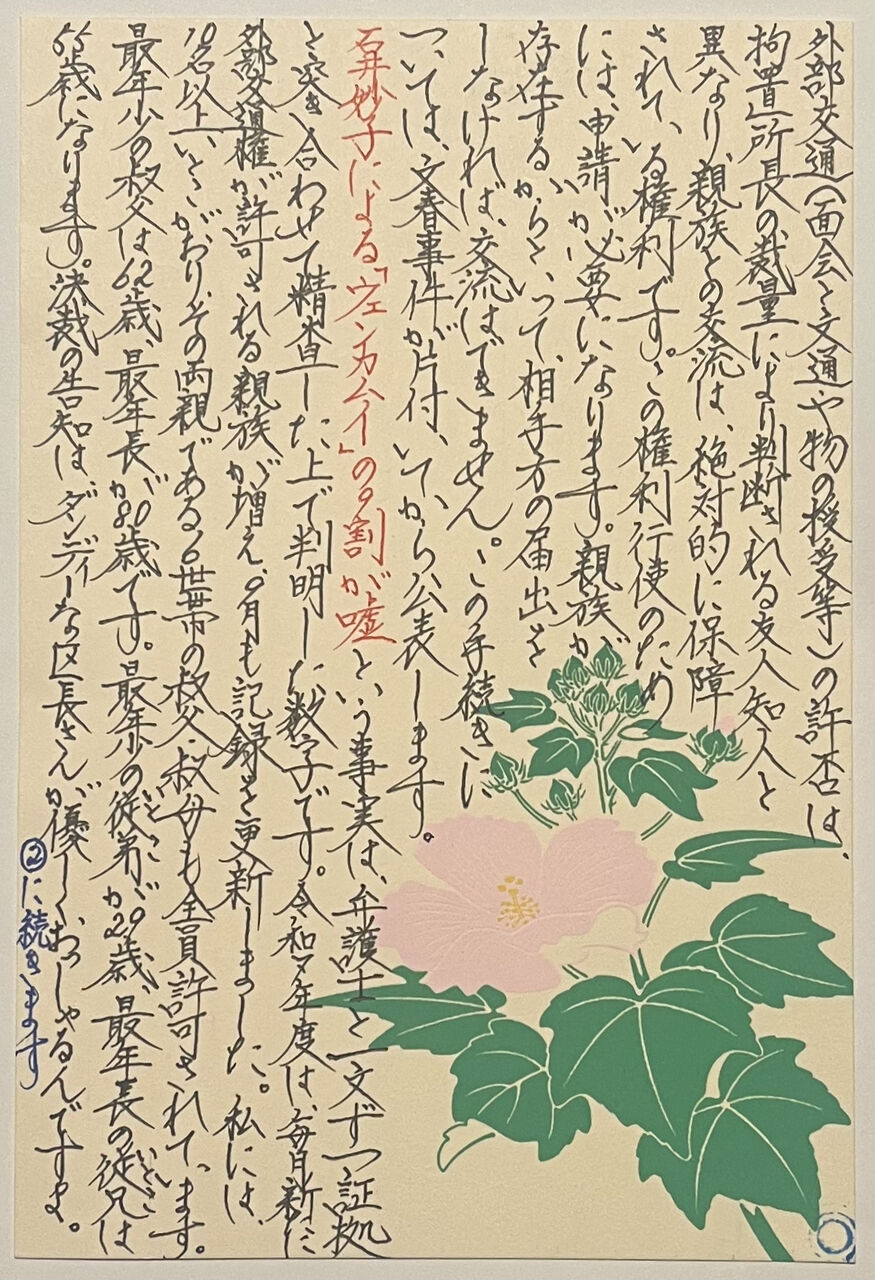 外部交通(面会と文通や物の授受等)の許否は、
拘置所長の裁量により判断される友人知人と
異なり、親族との交流は、絶対的に保障
されている権利です。この権利行使のため
には、申請が必要になります。親族が
存在するからといって、相手方の届出を
しなければ、交流はできません。この手続きに
ついては、文春事件が片付いてから公表します。
石井妙子による「ウェンカムイ」の9割が嘘という事実は、弁護士と一文ずつ証拠
と突き合わせて精査した上で判明した数字です。令和7年度は、毎月新に
外部交通権が許可される親族が増え、9月も記録を更新しました。私には、
10名以上いとこがおり、その両親である6世帯の叔父・叔母も全員許可されています。
最年少の叔父は62歳、最年長が80歳です。最年少の従弟(いとこ)が29歳、最年長の従兄(いとこ)は
55歳になります。決裁の告知は、ダンディーな区長さんが優しくおっしゃるんですよ。
②に続きます